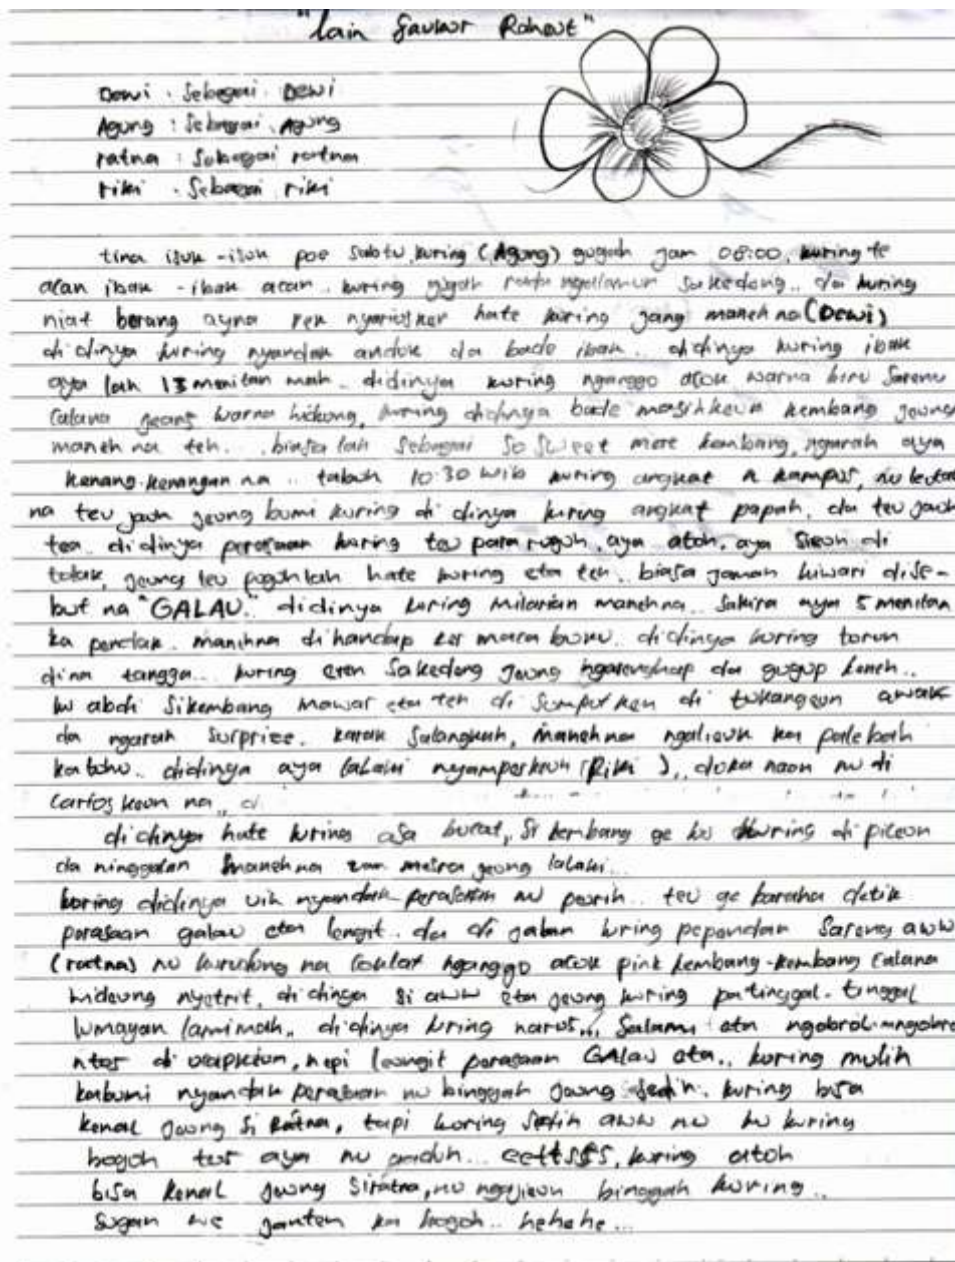 "Lain Saumur Raheut"
Dewi : Sebagai Dewi
Agung : Sebagai Agung
ratna : Sebagai ratna
riki : Sebagai riki
tina isuk-isuk poe sabtu, kuring (Agung) gugah jam 08:00, kuring te
acan ibak-ibak acan.. kuring gugah ngalamun sakedeng.. da kuring
niat berang ayna rek nyarioskeun hate kuring jang maneh na (Dewi)
di dinya kuring nyandak anduk da bade ibak.. didinya kuring ibak
aya lah 13 menitan mah.. didinya kuring nganggo acuk warna biru sareng
calana jeans warna hideung, kuring didinya bade masihkeun kembang jeung
maneh na teh.. biasa lah sebagai so sweet mere kembang, ngarah aya
kenang-kenangan na.. tabuh 10:30 wib kuring angkat ka kampus, nu
na teu jauh jeung bumi kuring di dinya kuring angkat papah, da teu jauh
tea. di dinya perasaan kuring teu pararuguh, aya atoh, aya sieun di
tolak, jeung teu puguh lah hate kuring eta teh. biasa jaman kiwari dise-
but na "GALAU." didinya kuring milarian manehna. sakira aya 5 menitan
ka pendak. manehna di handap ker maca buku.. di dinya kuring turun
dina tangga... kuring eren sakedeng jeung ngarenghap da gugup keneh..
ku abdi si kembang mawar eta teh di sumputkeun di tukangeun awak
da ngarah surprise. karak salangkah, manehna ngalieuk ka palebah
katuhu.. didinya aya lalaki nyamperkeun (Riki),, duka naon nu di
carioskeun na,,
didinya hate kuring asa bucat, si kembang ge ku kuring di piceun
da ninggalan manehna mesra jeung lalaki...
kuring didinya uih nyandak perasaan nu peurih.. teu ge baraha detik
perasaan galau eta lengit. da di jalan kuring pependak sareng aww
(ratna) nu kurudung na coklat nganggo acuk pink kembang-kembang calana
hideung nyetrit, di dinya si aww eta jeung kuring patinggal-tinggal
lumayan lami mah.. di dinya kuring naros,,, salami eta ngobrol-ngobrol
nepi leungit perasaan GALAU eta.. kuring mulih
kabumi nyandak perasaan nu bingah jeung sedih. kuring bisa
kenal jeung si Ratna, tapi kuring sedih aww nu ku kuring
bogoh tos aya nu.. eettsss, kuring atoh
bisa kenal jeung si ratna, nu ngajieun binggah kuring..
sugan we janten ka bogoh.. hehehe...